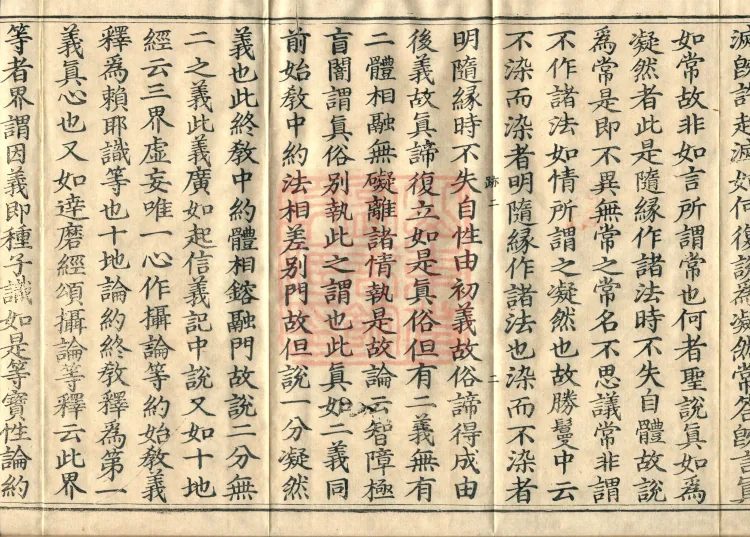 滅既許起滅如何復説爲凝然常答既言眞
如常故非如言所謂常也何者聖説眞如爲
凝然者此是隨緣作諸法時不失自體故説
爲常是即不異無常之常名不思議常非謂
不作諸法如情所謂之凝然也故勝鬘中云
不染而染者明隨緣作諸法也染而不染者
跡二
二
明隨緣時不失自性由初義故俗諦得成由
後義故眞諦復立如是眞俗但有二義無有
二體相融無礙離諸情執是故論云智障極
盲闇謂眞俗別執此之謂也此眞如二義同
前始教中約法相差別門故但説一分凝然
義也此終教中約體相鎔融門故説二分無
二之義此義廣如起信義記中説又如十地
經云三界虛妄唯一心作攝論等約始教義
釋爲賴耶識等也十地論約終教釋爲第一
義眞心也又如達磨經頌攝論等釋云此界
等者界謂因義即種子識如是等寶性論約